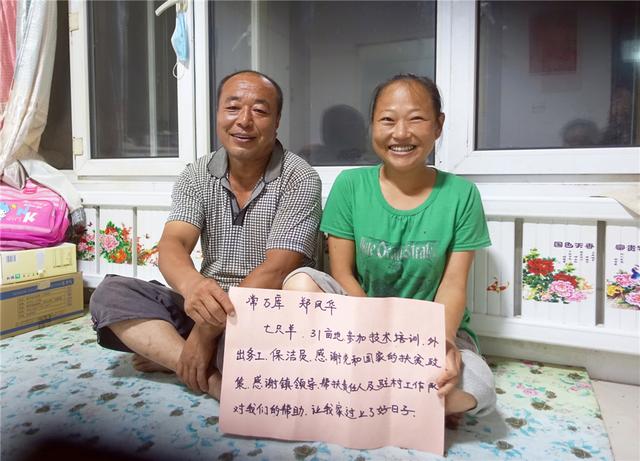 常万库 郑凤华
七只羊、31亩地参加技术培训、外
出务工、保洁员、感谢党和国家的扶贫政
策、感谢镇领导、帮扶责任人及驻村工作队
对我们的帮助、让我家过上了好日子。
国色天香